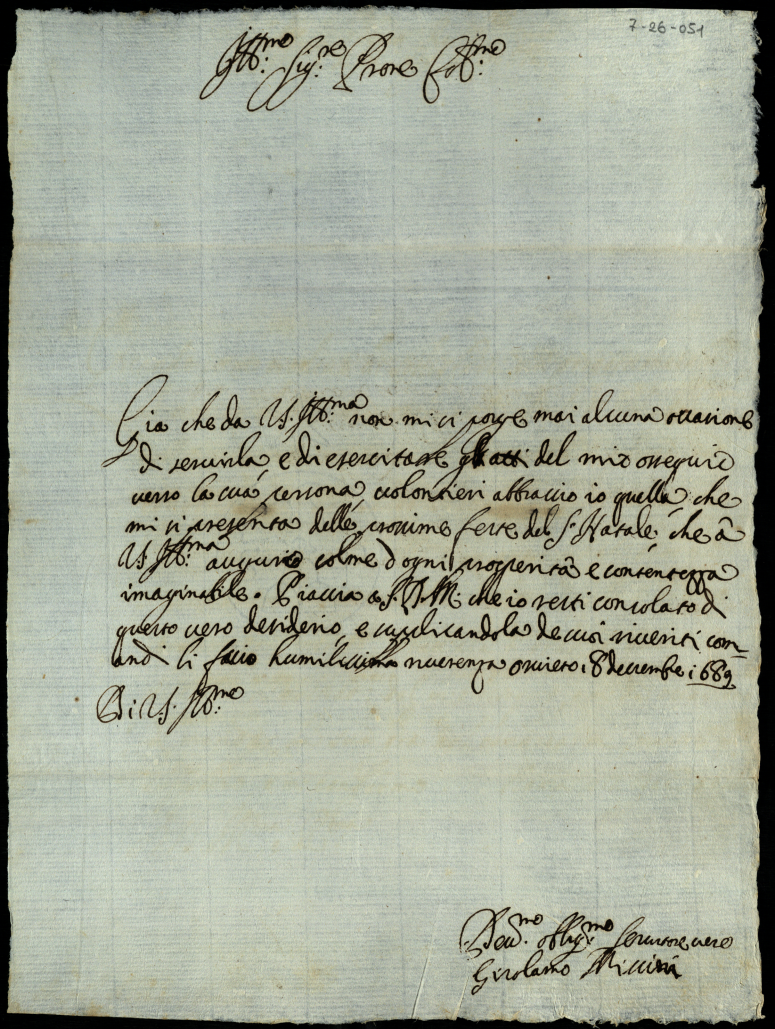 7-26-051
Ill:mo Sig:re Prone Col:mo
Gia che da V.S. Ill:ma non mi si porge mai alcuna occasione
di servirla, e di esercitare gli atti del mio ossequio
verso la sua persona, volontieri abbraccio io quella, che
mi si presenta delle prossime feste del S. Natale, che à
V.S. Ill:ma auguro colme d'ogni prosperità e contentezza
imaginabile. Piaccia a S.D.M. che io resti consolato di
questo vero desiderio, e supplicandola de suoi riveriti com-
andi li faccio humilissima riverenza Orvieto 18 decembre 1689
Di V.S. Ill:mo
Dev:mo obblig:mo servitore vero
Girolamo